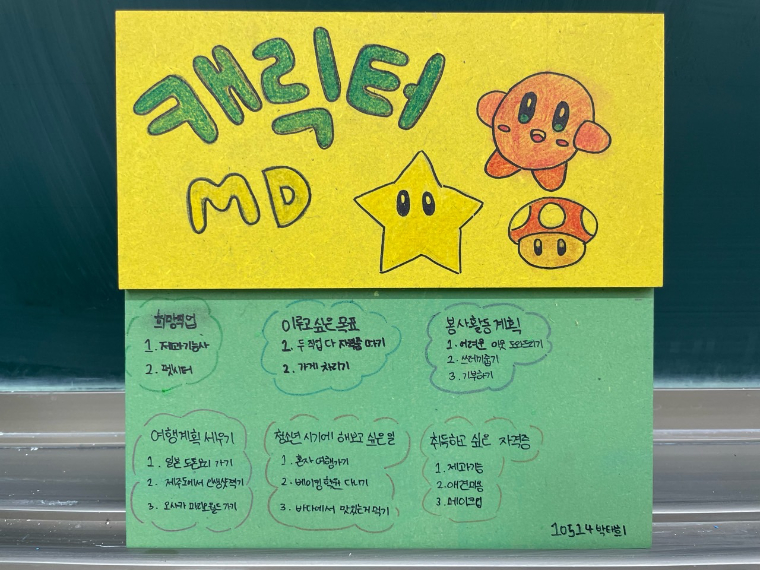 캐릭터
MD
희망직업
1. 제과기능사
2. 펫시터
이루고 싶은 목표
1. 두 직업 다 자격증 따기
2. 가게 차리기
봉사활동 계획
1. 어려운 이웃 도와드리기
2. 쓰레기줍기
3. 기부하기
여행계획 세우기
1. 일본 도톤보리 가기
2. 제주도에서 인생샷찍기
3. 오사카 마리오월드 가기
청소년 시기에 해보고 싶은일
1. 혼자 여행가기
2. 베이킹학원 다니기
3. 바다에서 맛있는거 먹기
취득하고 싶은 자격증
1. 제과기능
2. 애견미용
3. 메이크업
10514